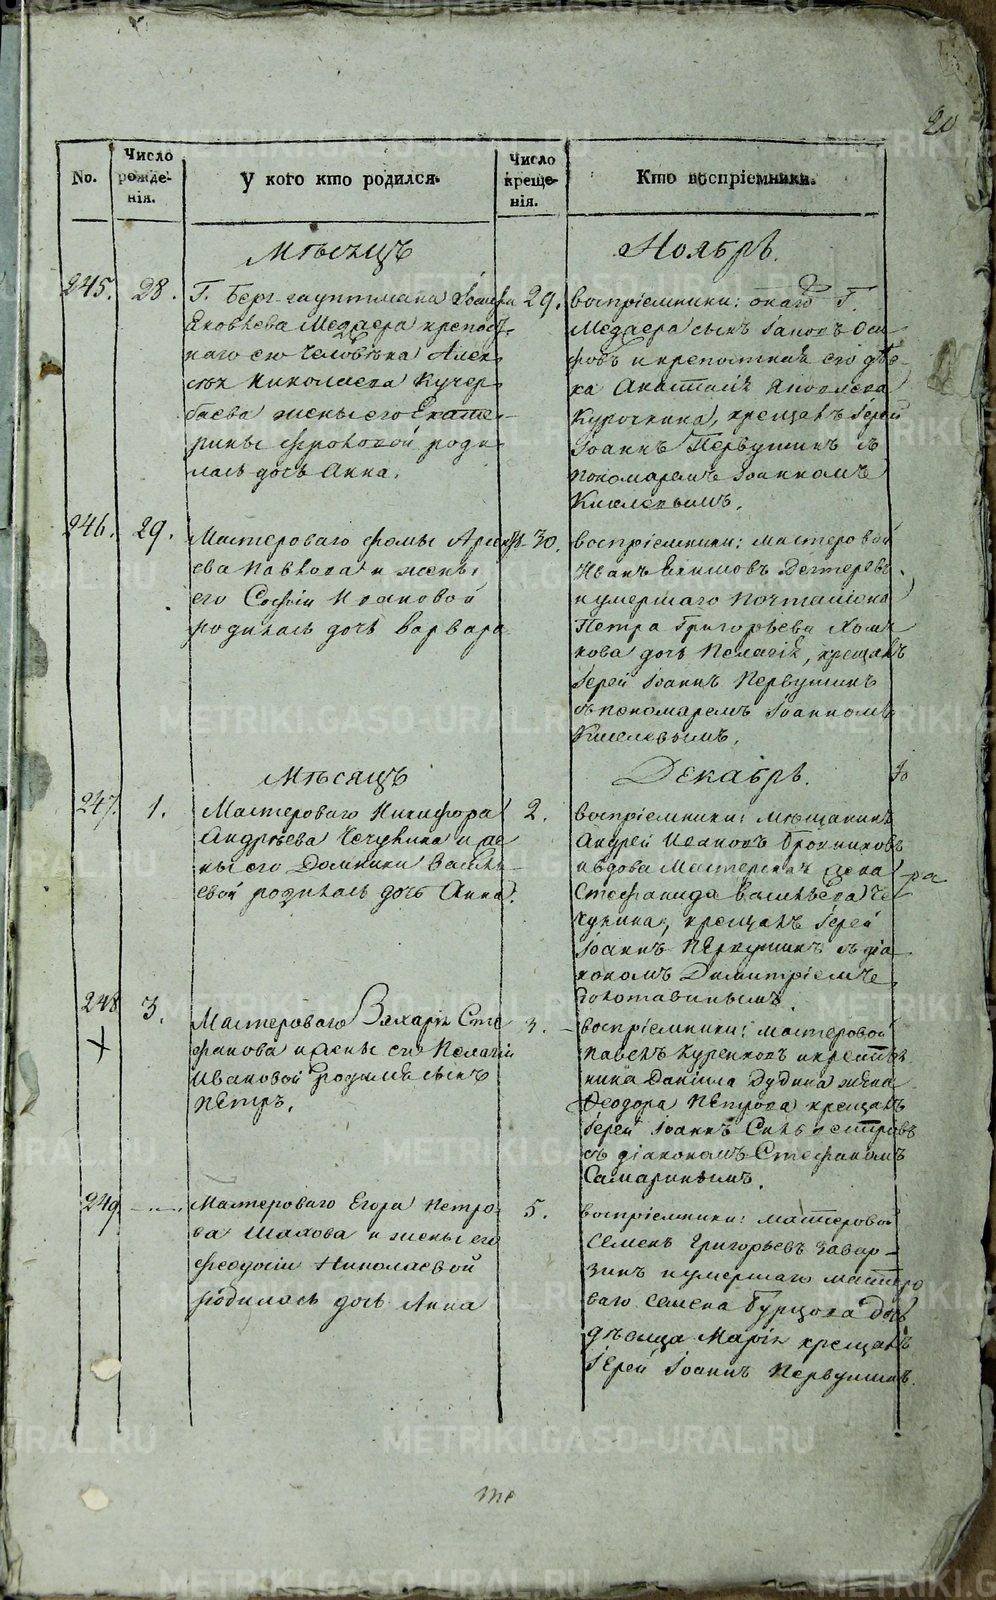 20
No.
Число рожде-нія.
У кого кто родился.
Число креще-нія.
Кто воспріемники.
Мѣсяцъ
Ноябрь.
245.
28.
Г. Берг-гауптмана Іосифа
Яковлева Медзера крепост-
наго его человѣка Алек-
сѣя Николаева Кучер-
баева жены его Екате-
рины Фроловой роди-
лась дочь Анна.
29.
воспріемники: онаго Г.
Медзера сынъ Іаковъ Оси-
фовъ и крепостная его дѣв-
ка Анастасія Яковлева
Курочкина, крещалъ Іерей
Іоаннъ Первушинъ съ
пономаремъ Іоанномъ
Киселевымъ.
246.
29.
Мастероваго Фомы Арсенть-
ева Павлова и жены
его Софіи Ивановой
родилась дочь Варвара
30.
воспріемники: мастеровой
Иванъ Екимовъ Дегтеревъ
и умершаго почталіона
Петра Григорьева Хом-
кова дочь Пелагія, крещалъ
Іерей Іоаннъ Первушинъ
съ пономаремъ Іоанномъ
Киселевымъ.
Мѣсяцъ
Декабрь.
247.
1.
Мастероваго Никифора
Андрѣева Чечулина и же-
ны его Домники Василь-
евой родилась дочь Анна.
2.
воспріемники: мѣщанинъ
Андрей Ивановъ Бронниковъ
и вдова мастерская жена
Стефанида Васильева Че-
чулина, крещалъ Іерей
Іоаннъ Первушинъ съ діа-
кономъ Димитріемъ
Золотавинымъ.
ра
248
3.
Мастероваго Захарія Сте-
фанова и жены его Пелагіи
Ивановой родился сынъ
Петръ.
3.
воспріемники: мастеровой
Павелъ Куренковъ и крестья-
нина Даніила Дудина жена
Феодора Петрова крещалъ
Іерей Іоаннъ Сильвестровъ
съ діакономъ Стефаномъ
Самаринымъ.
249
Мастероваго Егора Петро-
ва Шахова и жены его
Феодосіи Николаевой
родилась дочь Анна
5.
воспріемники: мастеровой
Семенъ Григорьевъ Завер-
зинъ и умершаго мастеро-
ваго Семена Бурцова дочь
дѣвица Марія крещалъ
Іерей Іоаннъ Первушинъ.
METRIKI.GASO-URAL.RU